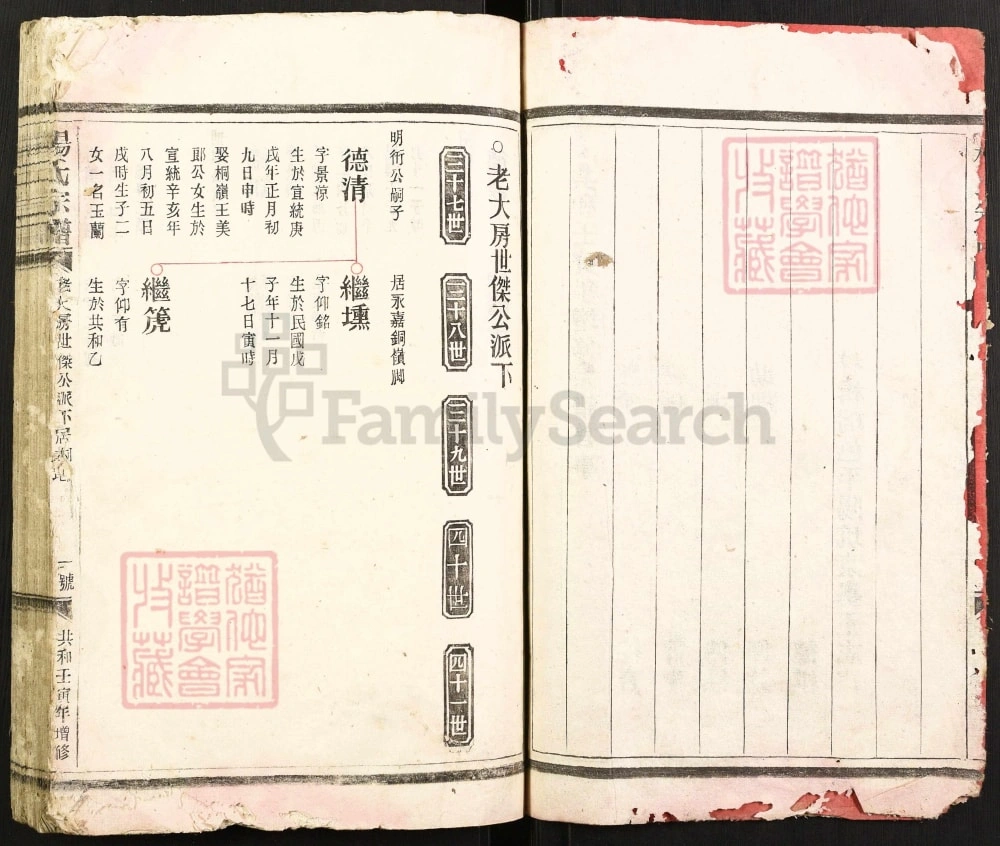 ○老大房世傑公派下
三十七世
三十八世
三十九世
四十世
四十一世
明衍公嗣子
居永嘉銅嶺脚
德清
字景凉
生於宣統庚
戌年正月初
九日申時
娶桐嶺王美
郎公女生於
宣統辛亥年
八月初五日
戌時生子二
女一名玉蘭
繼壎
字仰銘
生於民國戊
子年十一月
十七日寅時
繼篪
字仰有
生於共和乙
楊氏宗譜
老大房世傑公派下居
一號
共和壬寅年增修
猶他家
譜學會
收藏
猶他家
譜學會
收藏
FamilySearch